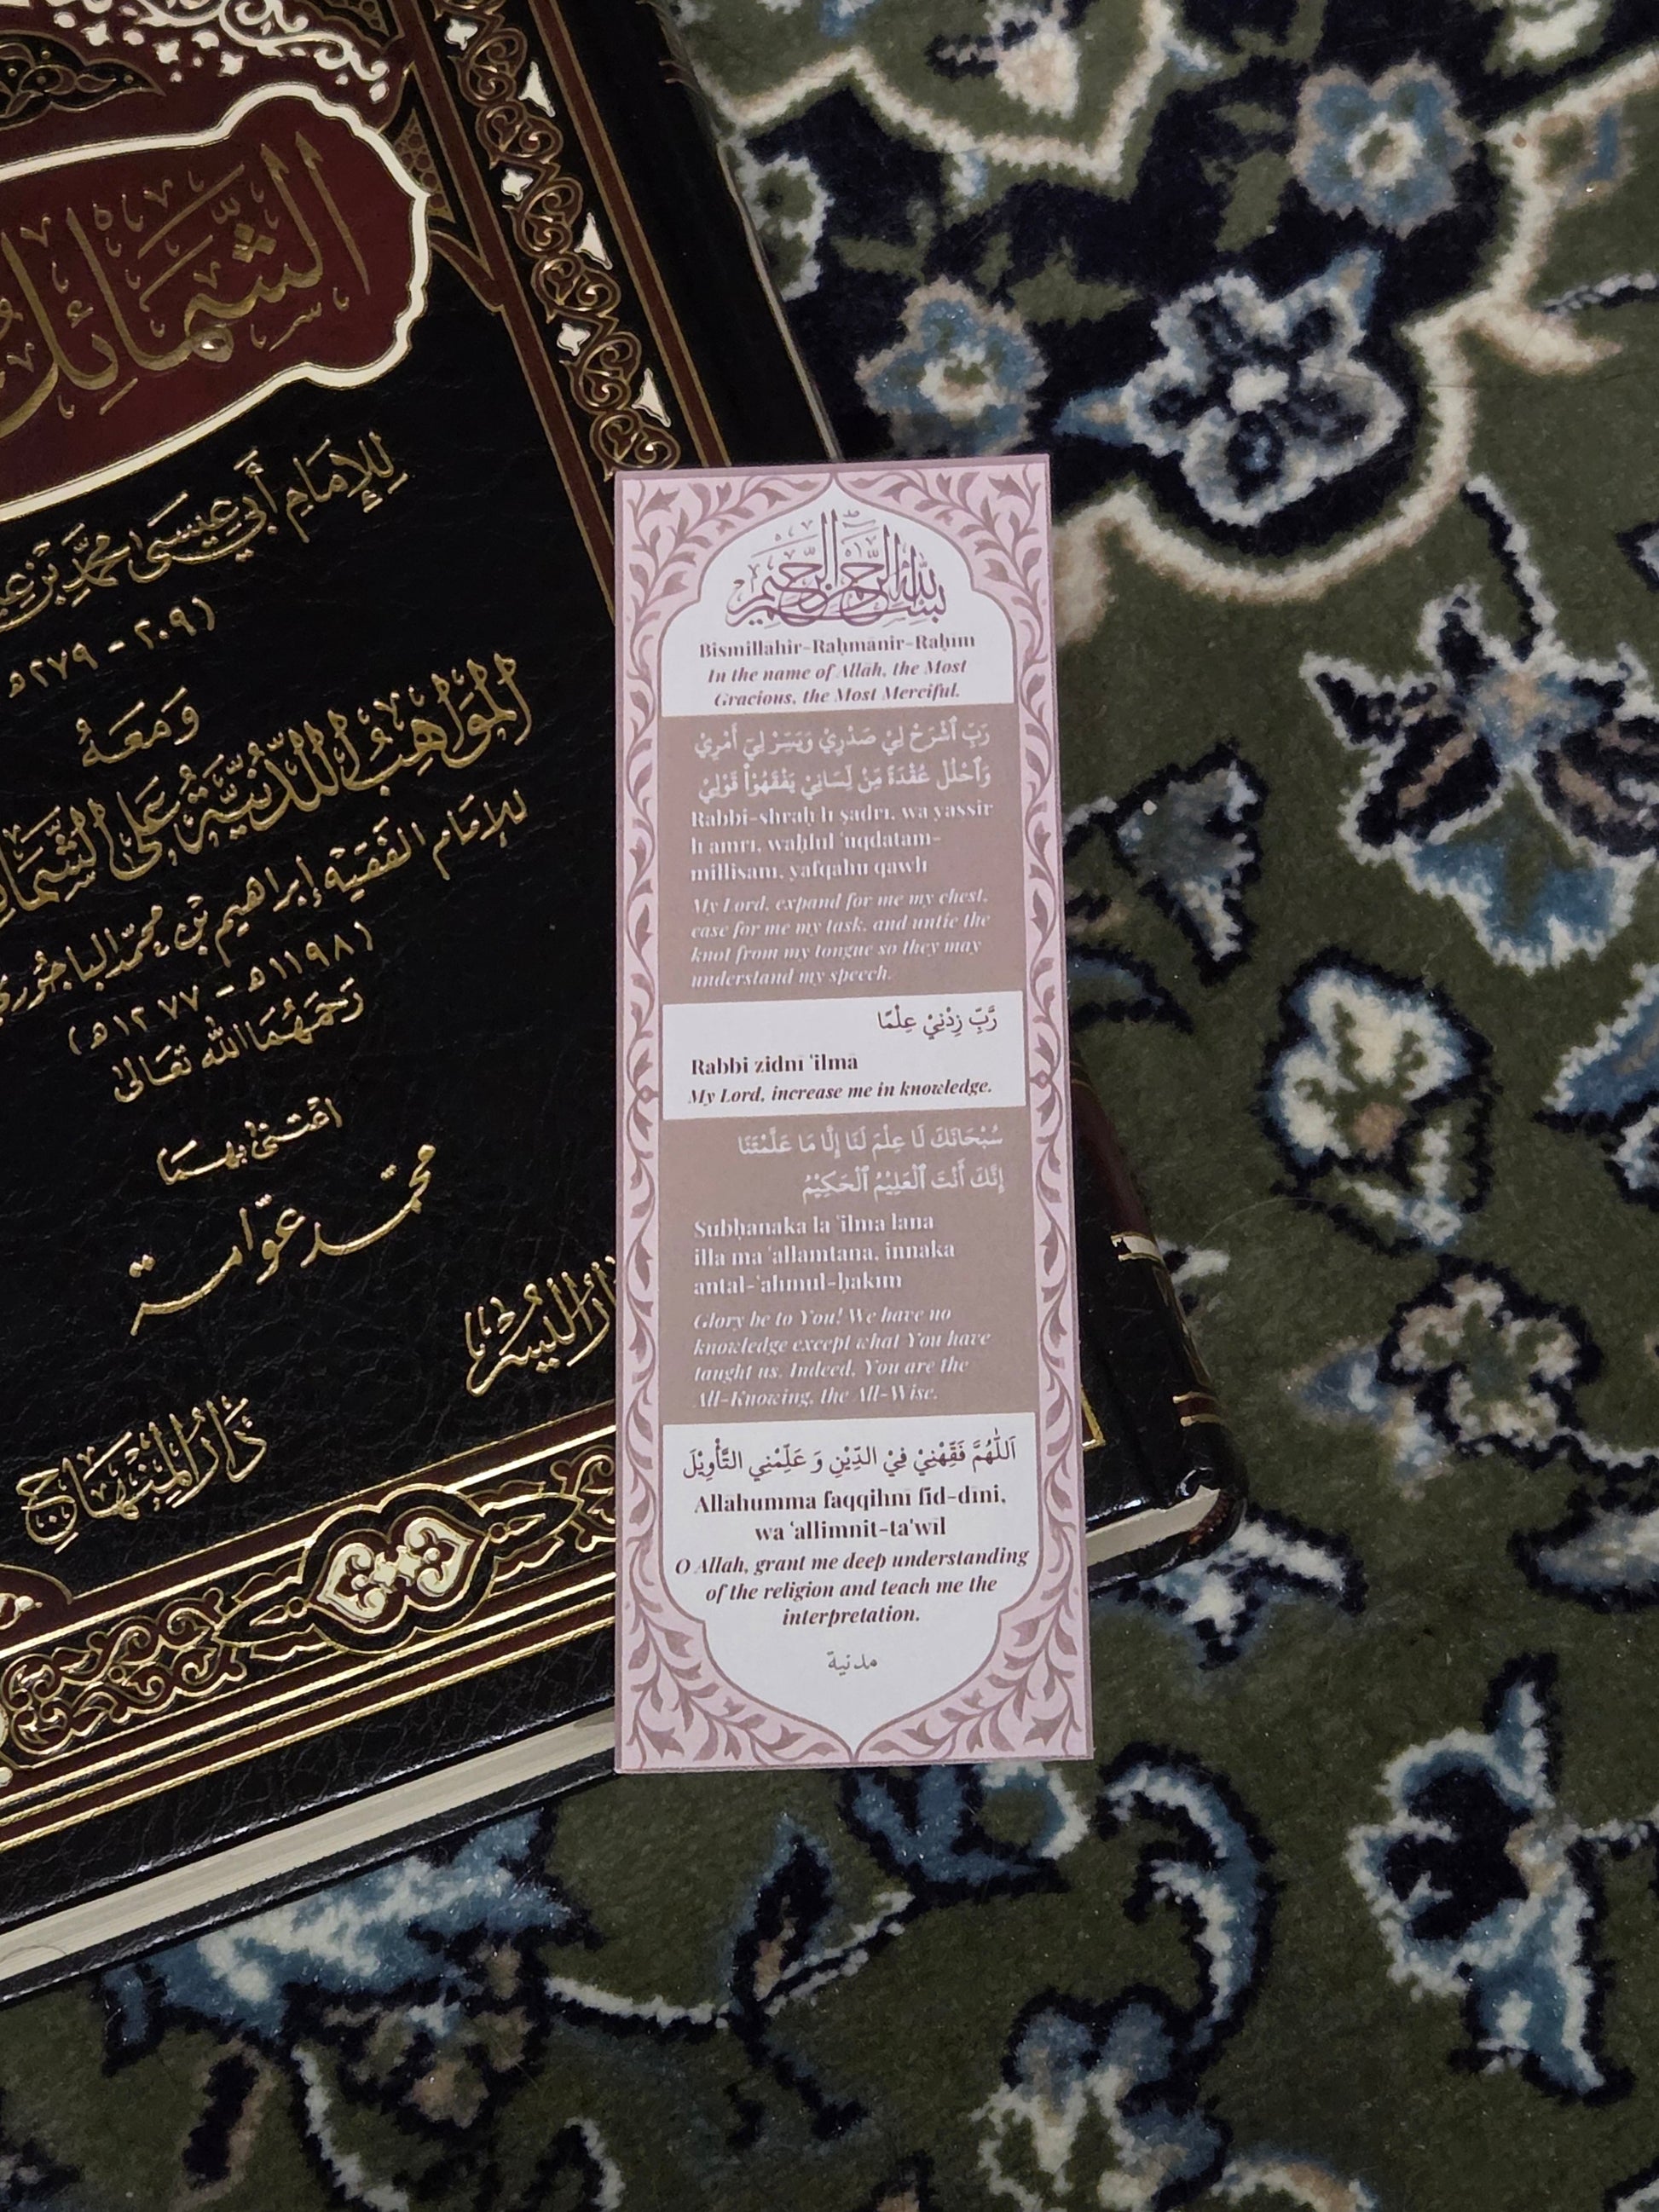 الشَّمَائِل
لِلإِمَامِ أَبِي عِيسَى مُحَمَّد بْن
(٢٠٩ - ٢٧٩ه
وَمَعَهُ
المَوَاهِبُ اللَّدُنِيَّةُ عَلَى الشَّمَائِل
لِلإِمَام الفَقِيه إبراهيم بْن محمّد الباجُوري
(١١٩٨ه - ١٢٧٧ه)
رَحِمَهُمَا الله تعَالىٰ
اعْتَنىٰ بهِمَا
محمّد عوّامة
دَارُ اليُسْر
دَارُ المِنْهَاج
بِسْمِ اللهِ الرَّحْمٰنِ الرَّحِيْمِ
Bismillāhir-Raḥmānir-Raḥīm
In the name of Allah, the Most
Gracious, the Most Merciful.
رَبِّ ٱشْرَحْ لِيْ صَدْرِيْ وَيَسِّرْ لِيْٓ أَمْرِيْ
وَٱحْلُلْ عُقْدَةً مِّنْ لِّسَانِيْ يَفْقَهُوْا قَوْلِيْ
Rabbi-shraḥ lī ṣadrī, wa yassir
lī amrī, waḥlul ʿuqdatam-
millisanī, yafqahu qawlī
My Lord, expand for me my chest,
ease for me my task, and untie the
knot from my tongue so they may
understand my speech.
رَّبِّ زِدْنِيْ عِلْمًا
Rabbi zidnī ʿilmā
My Lord, increase me in knowledge.
سُبْحَانَكَ لَا عِلْمَ لَنَا إِلَّا مَا عَلَّمْتَنَا
إِنَّكَ أَنْتَ ٱلْعَلِيْمُ ٱلْحَكِيْمُ
Subḥanaka la ʿilma lana
illa ma ʿallamtana, innaka
antal-ʿalīmul-ḥakīm
Glory be to You! We have no
knowledge except what You have
taught us. Indeed, You are the
All-Knowing, the All-Wise.
اَللّٰهُمَّ فَقِّهْنِيْ فِيْ الدِّيْنِ وَ عَلِّمْنِي التَّأْوِيْلَ
Allahumma faqqihnī fid-dīni,
wa ʿallimnit-ta'wīl
O Allah, grant me deep understanding
of the religion and teach me the
interpretation.
مدنية